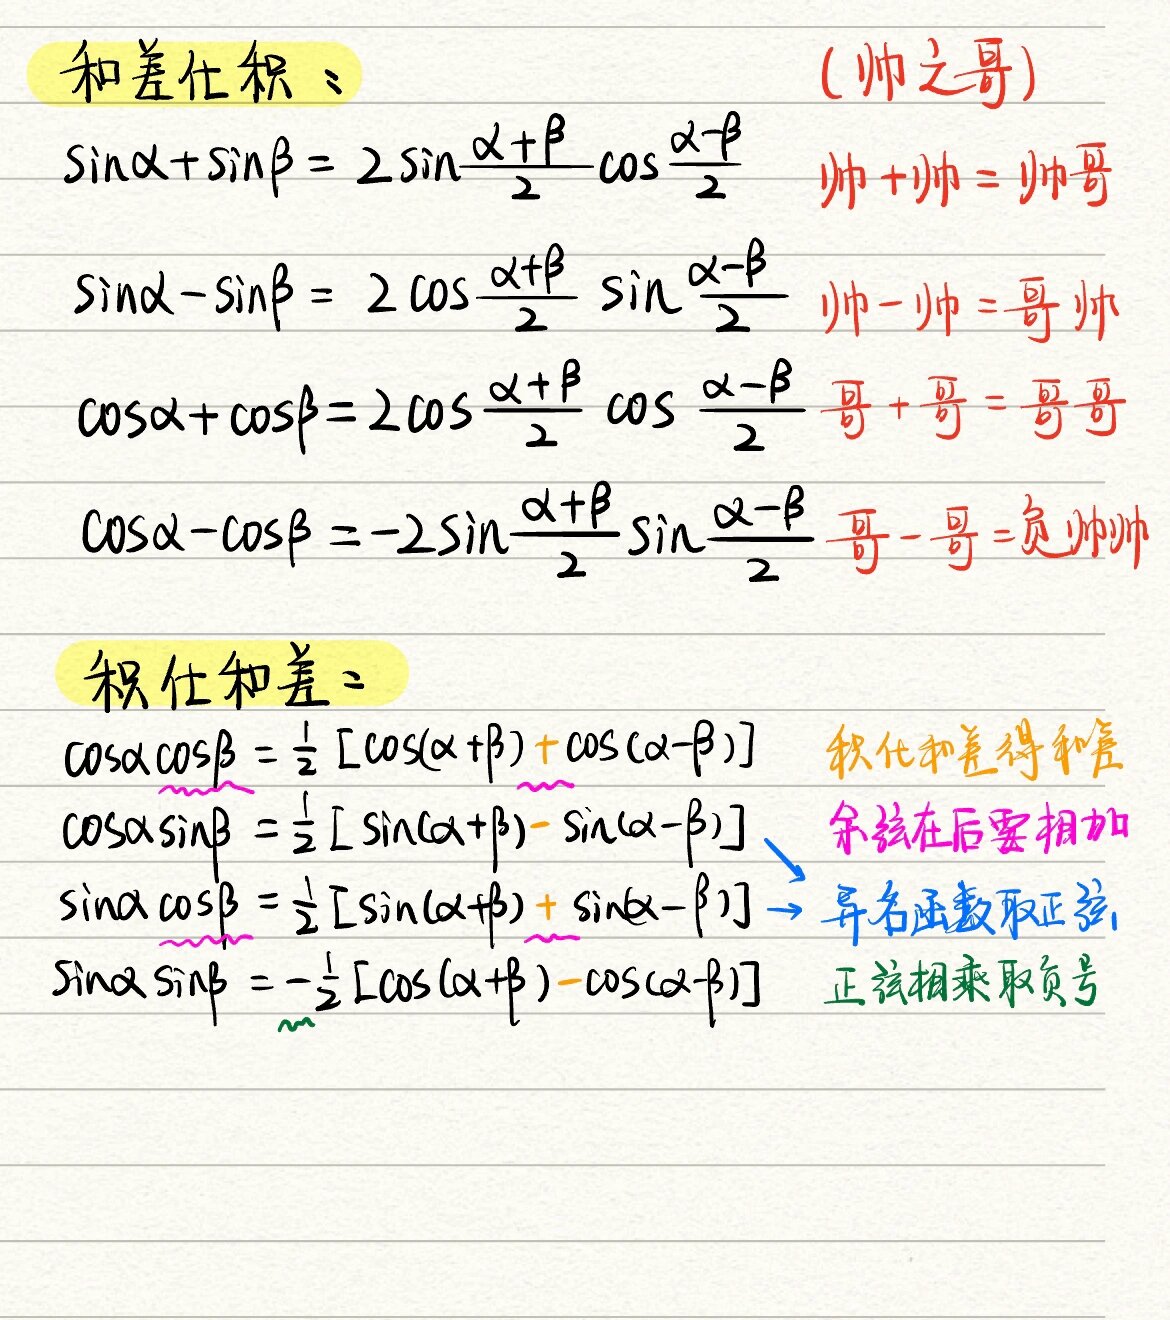 和差化积： （帅之哥）
sinα+sinβ = 2sin(α+β)/2 cos(α-β)/2 帅+帅=帅哥
sinα-sinβ = 2cos(α+β)/2 sin(α-β)/2 帅-帅=哥帅
cosα+cosβ=2cos(α+β)/2 cos(α-β)/2 哥+哥=哥哥
cosα-cosβ=-2sin(α+β)/2 sin(α-β)/2 哥-哥=负帅帅
积化和差：
cosαcosβ = 1/2[cos(α+β)+cos(α-β)] 积化和差得和差
cosαsinβ = 1/2[sin(α+β)-sin(α-β)] 余弦在后要相加
sinαcosβ = 1/2[sin(α+β)+sin(α-β)] → 异名函数取正弦
sinαsinβ = -1/2[cos(α+β)-cos(α-β)] 正弦相乘取负号